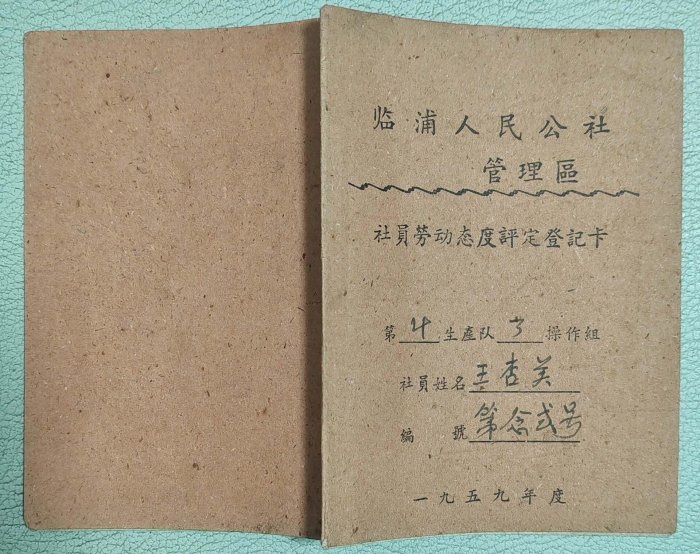 临浦人民公社
管理區
社員劳动态度評定登記卡
第 4 生產队 3 操作組
社員姓名 王杏美
編號 第念弍号
一九五九年度